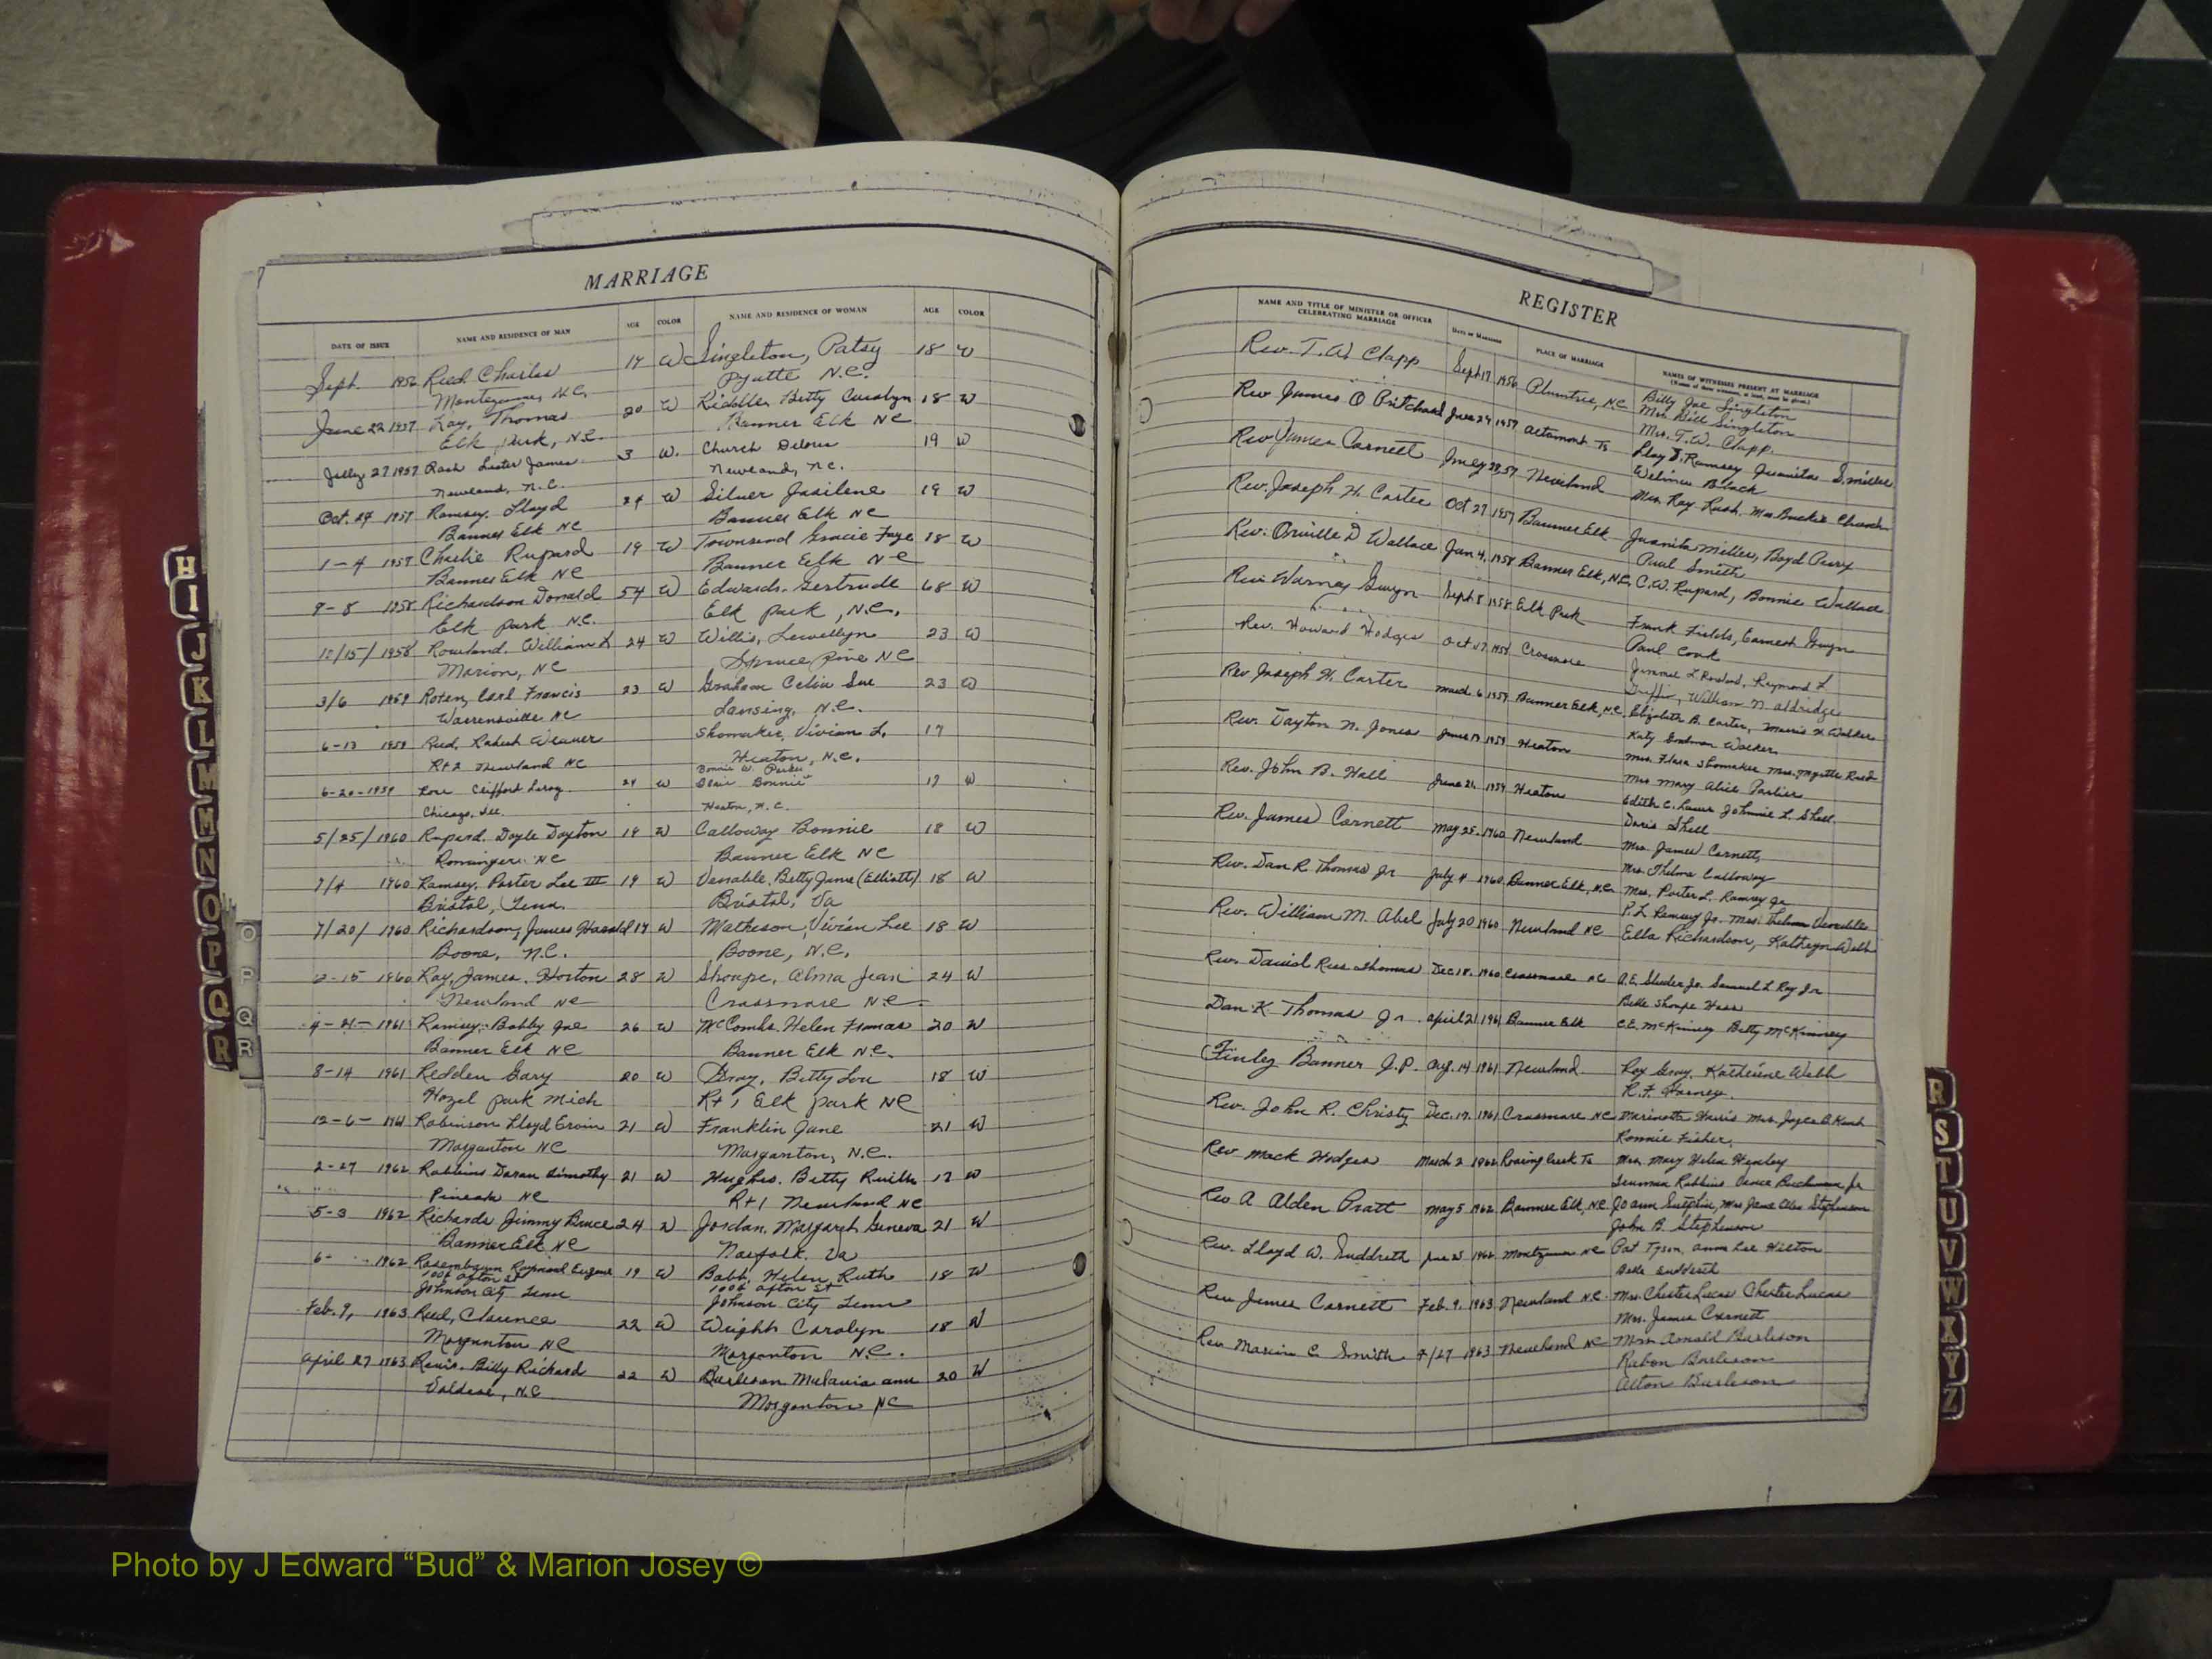 MARRIAGE
DATE OF ISSUE NAME AND RESIDENCE OF MAN AGE COLOR NAME AND RESIDENCE OF WOMAN AGE COLOR
Sept. 1956 Reed, Charles 17 W Singleton, Patsy 18 W
Montezuma, N.C. Pyatte N.C.
June 22 1957 Thomas 20 W Riddle, Betty Carolyn 18 W
Elk Park, N.C. Banner Elk NC
July 27 1957 Rash Lester James 3 W. Church Delores 19 W
Newland, N.C. Newland, N.C.
Oct. 27 1957 Ramsey, Lloyd 24 W Silver 19 W
Banner Elk NC Banner Elk NC
1-4 1957 Charlie Rupard 19 W Townsend Gracie Faye 18 W
Banner Elk NC Banner Elk NC
9-8 1958 Richardson Donald 54 W Edwards, Gertrude 68 W
Elk Park N.C. Elk Park, N.C.
10/15/1958 Rowland, William L 24 W Willis, Lewellyn 23 W
Marion, NC Spruce Pine NC
3/6 1959 Roten, Carl Francis 23 W Graham Celia Sue 23 W
Warrensville NC Lansing, N.C.
6-13 1959 Reed, Weaver Shomaker, Vivian L. 17
Rt 2 Newland NC Heaton, N.C.
Bonnie W. Parlier
6-20-1959 Clifford Leroy 24 W Blair Bonnie 17 W
Chicago, Ill. Heaton, N.C.
5/25/1960 Rupard, Doyle Dayton 18 W Calloway Bonnie 18 W
Rominger NC Banner Elk NC
7/4 1960 Ramsey, Porter Lee III 19 W Venable, Betty Jane (Elliott) 18 W
Bristol, Tenn. Bristol, Va
7/20/ 1960 Richardson, James Harold 19 W Matheson, Vivian Lee 18 W
Boone, N.C. Boone, N.C.
12-15 1960 Ray, James Horton 28 W Shoupe, Alma Jean 24 W
Newland NC Crossnore N.C.
4-21- 1961 Ramsey, Bobby Joe 26 W McCombs, Helen Frances 20 W
Banner Elk NC Banner Elk N.C.
8-14 1961 Redden Gary 20 W Gray, Betty Lou 18 W
Hazel Park Mich Rt 1 Elk Park NC
12-6- 1961 Robinson Lloyd Ervin 21 W Franklin Jane 21 W
Morganton NC Morganton, N.C.
2-27 1962 Robbins Timothy 21 W Hughes, Betty Ruth 17 W
Pineola NC Rt 1 Newland NC
5-3 1962 Richards Jimmy Bruce 24 W Jordan, Margaret Geneva 21 W
Banner Elk NC Norfolk, Va
6- 1962 Rosenbaum Raymond Eugene 19 W Babb, Helen Ruth 18 W
1006 Afton St 1006 Afton St
Johnson City Tenn Johnson City Tenn
Feb. 9, 1963 Reed, Clarence 22 W Wright Carolyn 18 W
Morganton NC Morganton N.C.
April 27 1963 Billy Richard 22 W Burleson Ann 20 W
Valdese, N.C Morganton NC
REGISTER
NAME AND TITLE OF MINISTER OR OFFICER CELEBRATING MARRIAGE DATE OF MARRIAGE PLACE OF MARRIAGE NAMES OF WITNESSES PRESENT AT MARRIAGE
Rev. T.W. Clapp Sept 17 1956 Plumtree, NC Billy Joe Singleton
Mrs. Bill Singleton
Mrs. T.W. Clapp.
Rev James O Pritchard June 24 1957 Altamont Ts Lloyd Ramsey Juanita S. Miller
Black
Rev James Cornett July 28, 57 Newland Mrs Ray Rash, Mrs Church
Rev. Joseph H. Carter Oct 27 1957 Banner Elk Juanita Miller, Boyd
Paul Smith
Rev. Orville D Wallace Jan 4, 1958 Banner Elk, N.C. C.W. Rupard, Bonnie Wallace
Rev Warney Gwyn Sept 8 1958 Elk Park Frank Fields, Earnest Gwyn
Paul Cook
Rev. Howard Hodges Oct 17 1958 Crossnore Jimmie L Rowland, Raymond L
William N. Aldridge
Rev Joseph H. Carter March 6 1959 Banner Elk, N.C. Elizabeth B. Carter, Walker
Katy Walker
Rev. Dayton N. Jones June 13 1959 Heaton Mrs. Flora Shomaker Mrs. Myrtle Reed
Mrs Mary Alice Parlier
Rev. John B. Hall June 21, 1959 Heaton Edith C. Johnnie L. Shell
Doris Shell
Rev. James Cornett May 25, 1960 Newland Mrs. James Cornett
Mrs. Thelma Calloway
Rev. Dan R. Thomas Jr July 4 1960 Banner Elk, N.C. Mrs. Porter L. Ramsey Jr.
P.L Ramsey Jr. Mrs. Venable
Rev. William M. Abel July 20 1960 Newland NC Ella Richardson, Kathryn Webb
Rev. David Thomas Dec 18, 1960 Crossnore NC Jr. Samuel L Ray Jr
Belle Shoupe
Dan K. Thomas Jr. April 21 1961 Banner Elk C.E. McKinney Betty McKinney
Finley Banner J.P. Aug. 14 1961 Newland Roy Gray, Katherine Webb
R.F. Harney
Rev. John R. Christy Dec. 17, 1961 Crossnore NC Harris Mrs. Joyce
Ronnie Fisher
Rev Mack Hodges March 2 1962 Roaring Creek Ts Mrs. Mary Helen
Robbins Jr
Rev A Alden Pratt May 5 1962 Banner Elk, N.C. Jo Ann Mrs Jane Stephenson
John B. Stephenson
Rev. Lloyd W. Suddreth June 25 1962 Montezuma NC Pat Tyson, Anna Lee Hilton
Suddreth
Rev James Cornett Feb. 9, 1963 Newland N.C. Mrs. Chester Lucas Chester Lucas
Mrs. James Cornett
Rev C. Smith 4/27 1963 Newland NC Mrs. Arnold Burleson
Burleson
Alton Burleson
H
I
J
K
L
M
M
N
O
P
Q
R
O
P
Q
R
R
S
T
U
V
W
X
Y
Z
Photo by J Edward “Bud” & Marion Josey ©